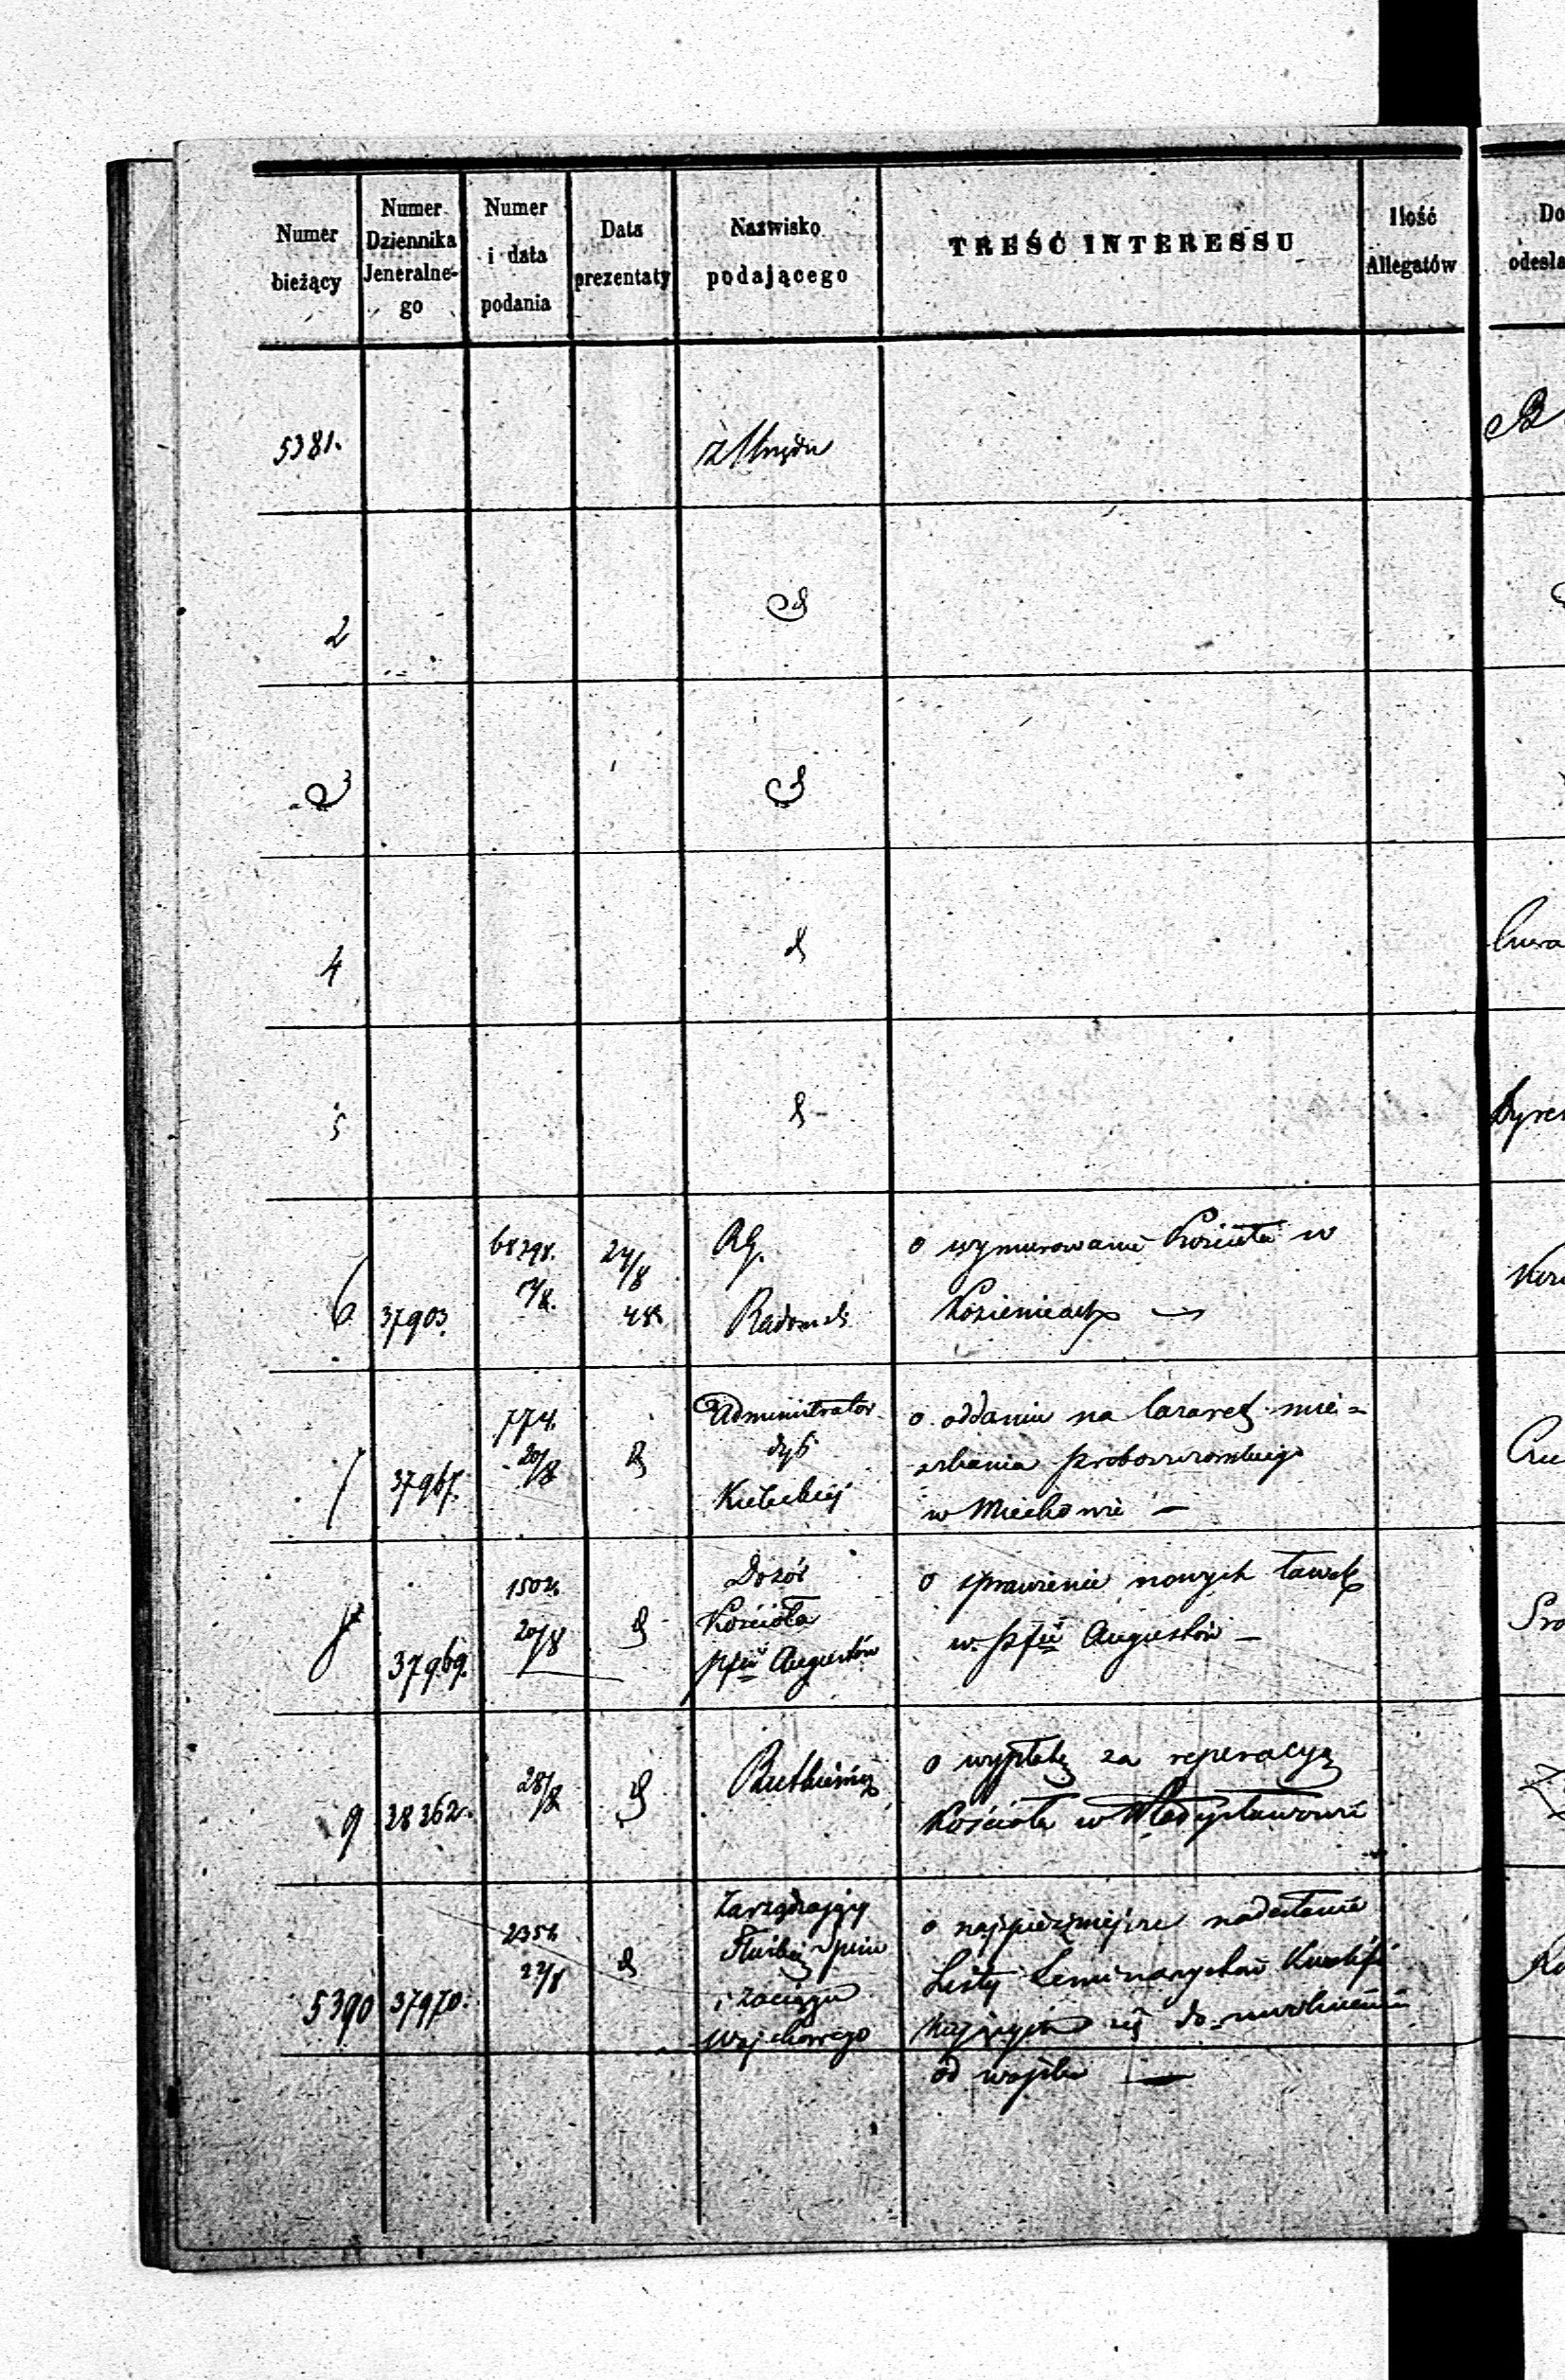 Numer bieżący | Numer Dziennika Jeneralne-go | Numer i data podania | Data prezentaty | Nazwisko podającego | TREŚĆ INTERESSU | Ilość Allegatów | Do odesła
5381. z Urzędu
2
3
4
5
6 37903. 24/8 48 RG. Radomski o wymurowanie Kościoła w
Kozienicach —
7 37967. 774. 20/8 Administrator dyć. Kieleckiej o oddaniu na lazaret mie=
szkania proboszczowskiego
w Miechowie —
8 37969. 1502. 20/8 Dozór Kościoła pfii Augustów o sprawienie nowych ławek
w pfii Augustów —
9 38362. 28/8 Rutkiewicz o wypłatę za reperacyą
Kościoła w Władysławowie
5390 37970. 2356. 22/8 Zarządzający Służbą Spisu i zaciągu wojskowego o najspieszniejsze nadesłanie
Listy Seminarystów kwalifi
kujących się do uwolnienia
od wojska —